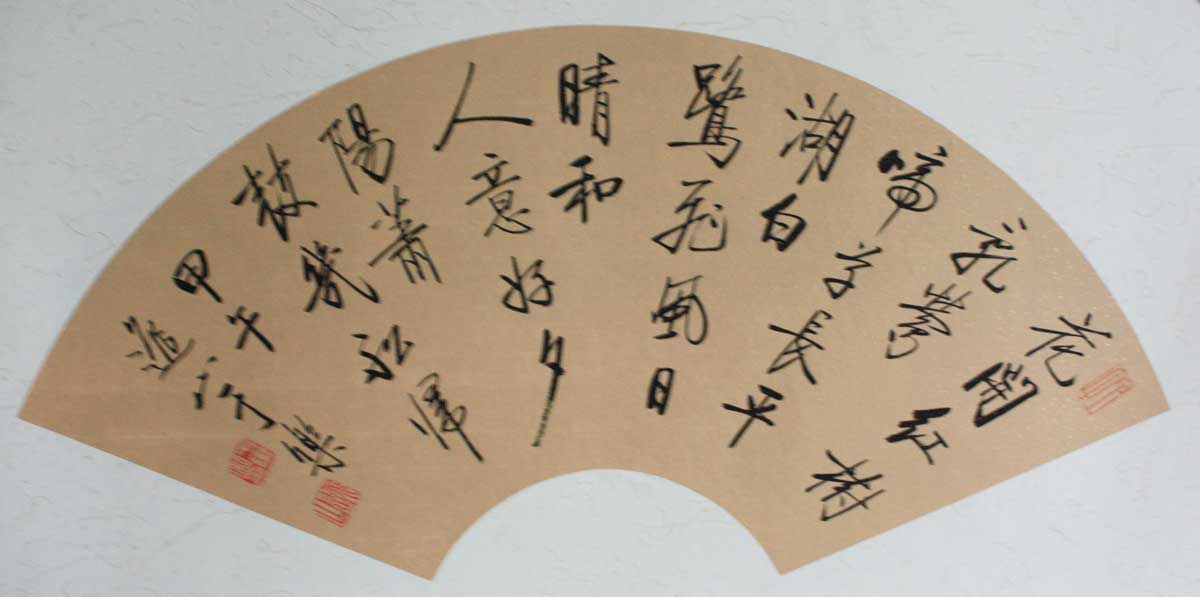 花開紅樹
亂鶯
啼草長平
湖白
鷺飛風日
晴和
人意好夕
陽簫
鼓幾船歸
甲午